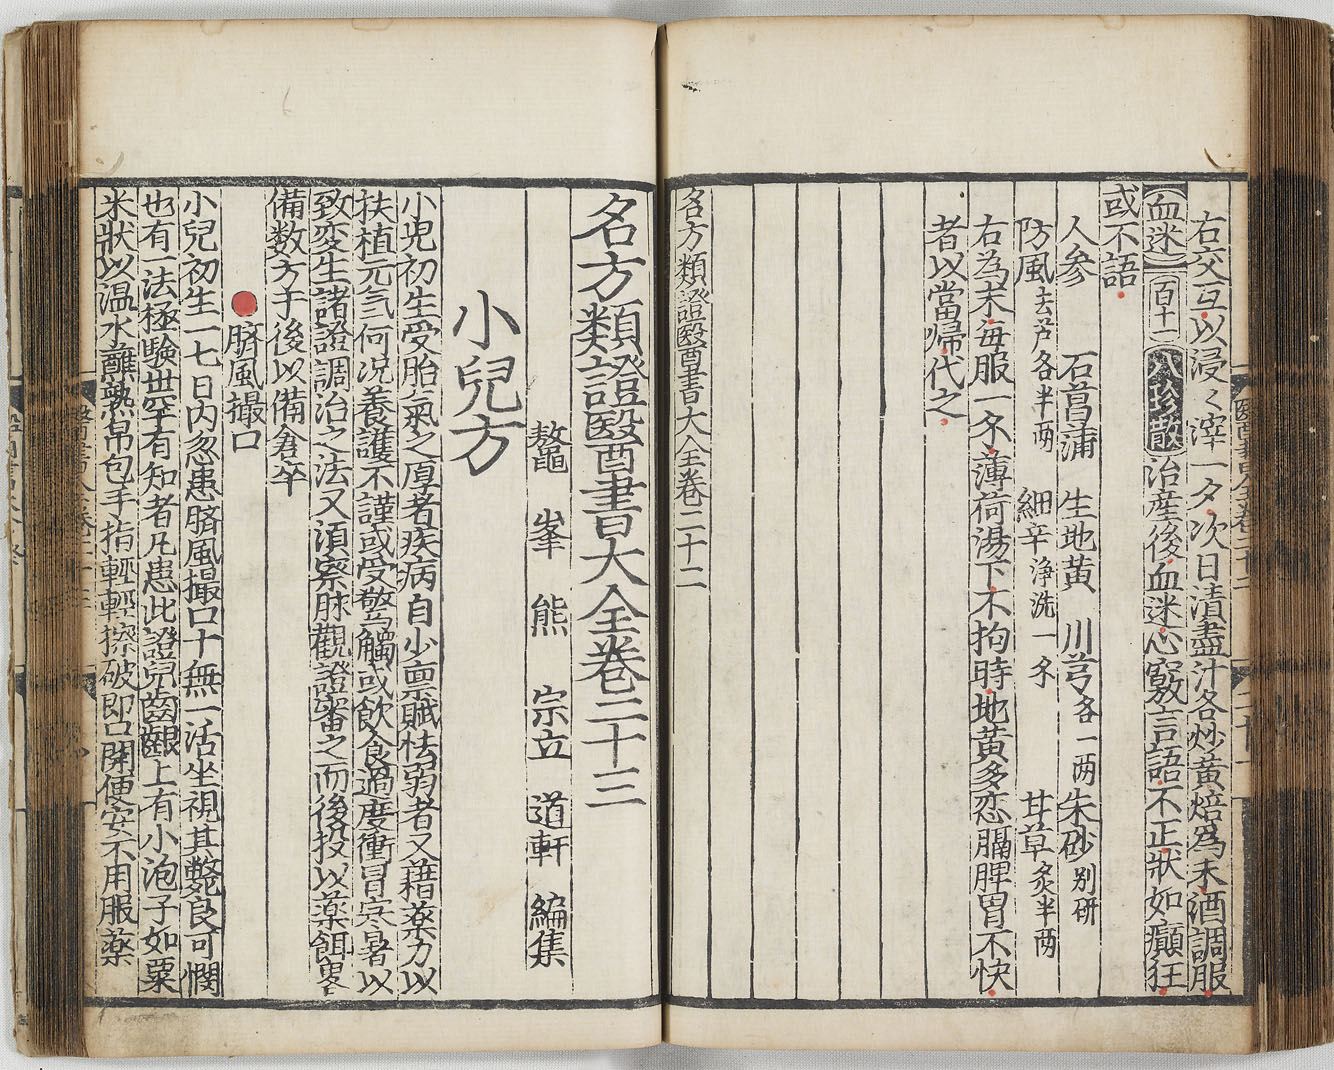 右交互以浸々滓一夕次日漬盡汁各炒黄焙為末酒調服
血迷 百十一 八珍散 治産後血迷心竅言語不正狀如癲狂
或不語
人参 石菖蒲 生地黄 川芎各一两 朱砂别研
防風去芦各半两 細辛净洗一夕 甘草炙半两
右為末毎服一夕薄荷湯下不拘時地黄多恋膈脾胃不快
者以當帰代之
名方類證醫書大全卷二十二
名方類證醫書大全卷二十三
鼇峯 熊 宗立 道軒 編集
小兒方
小兒初生受胎氣之厚者疾病自少禀賦怯弱者又藉薬力以
扶植元氣何况養護不謹或受驚觸或飲食過度衝冒寒暑以
致変生諸證調治之法又須察脉觀證審之而後投以薬餌畧
備数方于後以備倉卒
臍風撮口
小兒初生一七日内忽患臍風撮口十無一活坐視其斃良可憫
也有一法極験世罕有知者凡患此證兒齒齦上有小泡子如粟
米狀以温水蘸熟帛包手指輕輕擦破即口開便安不用服薬